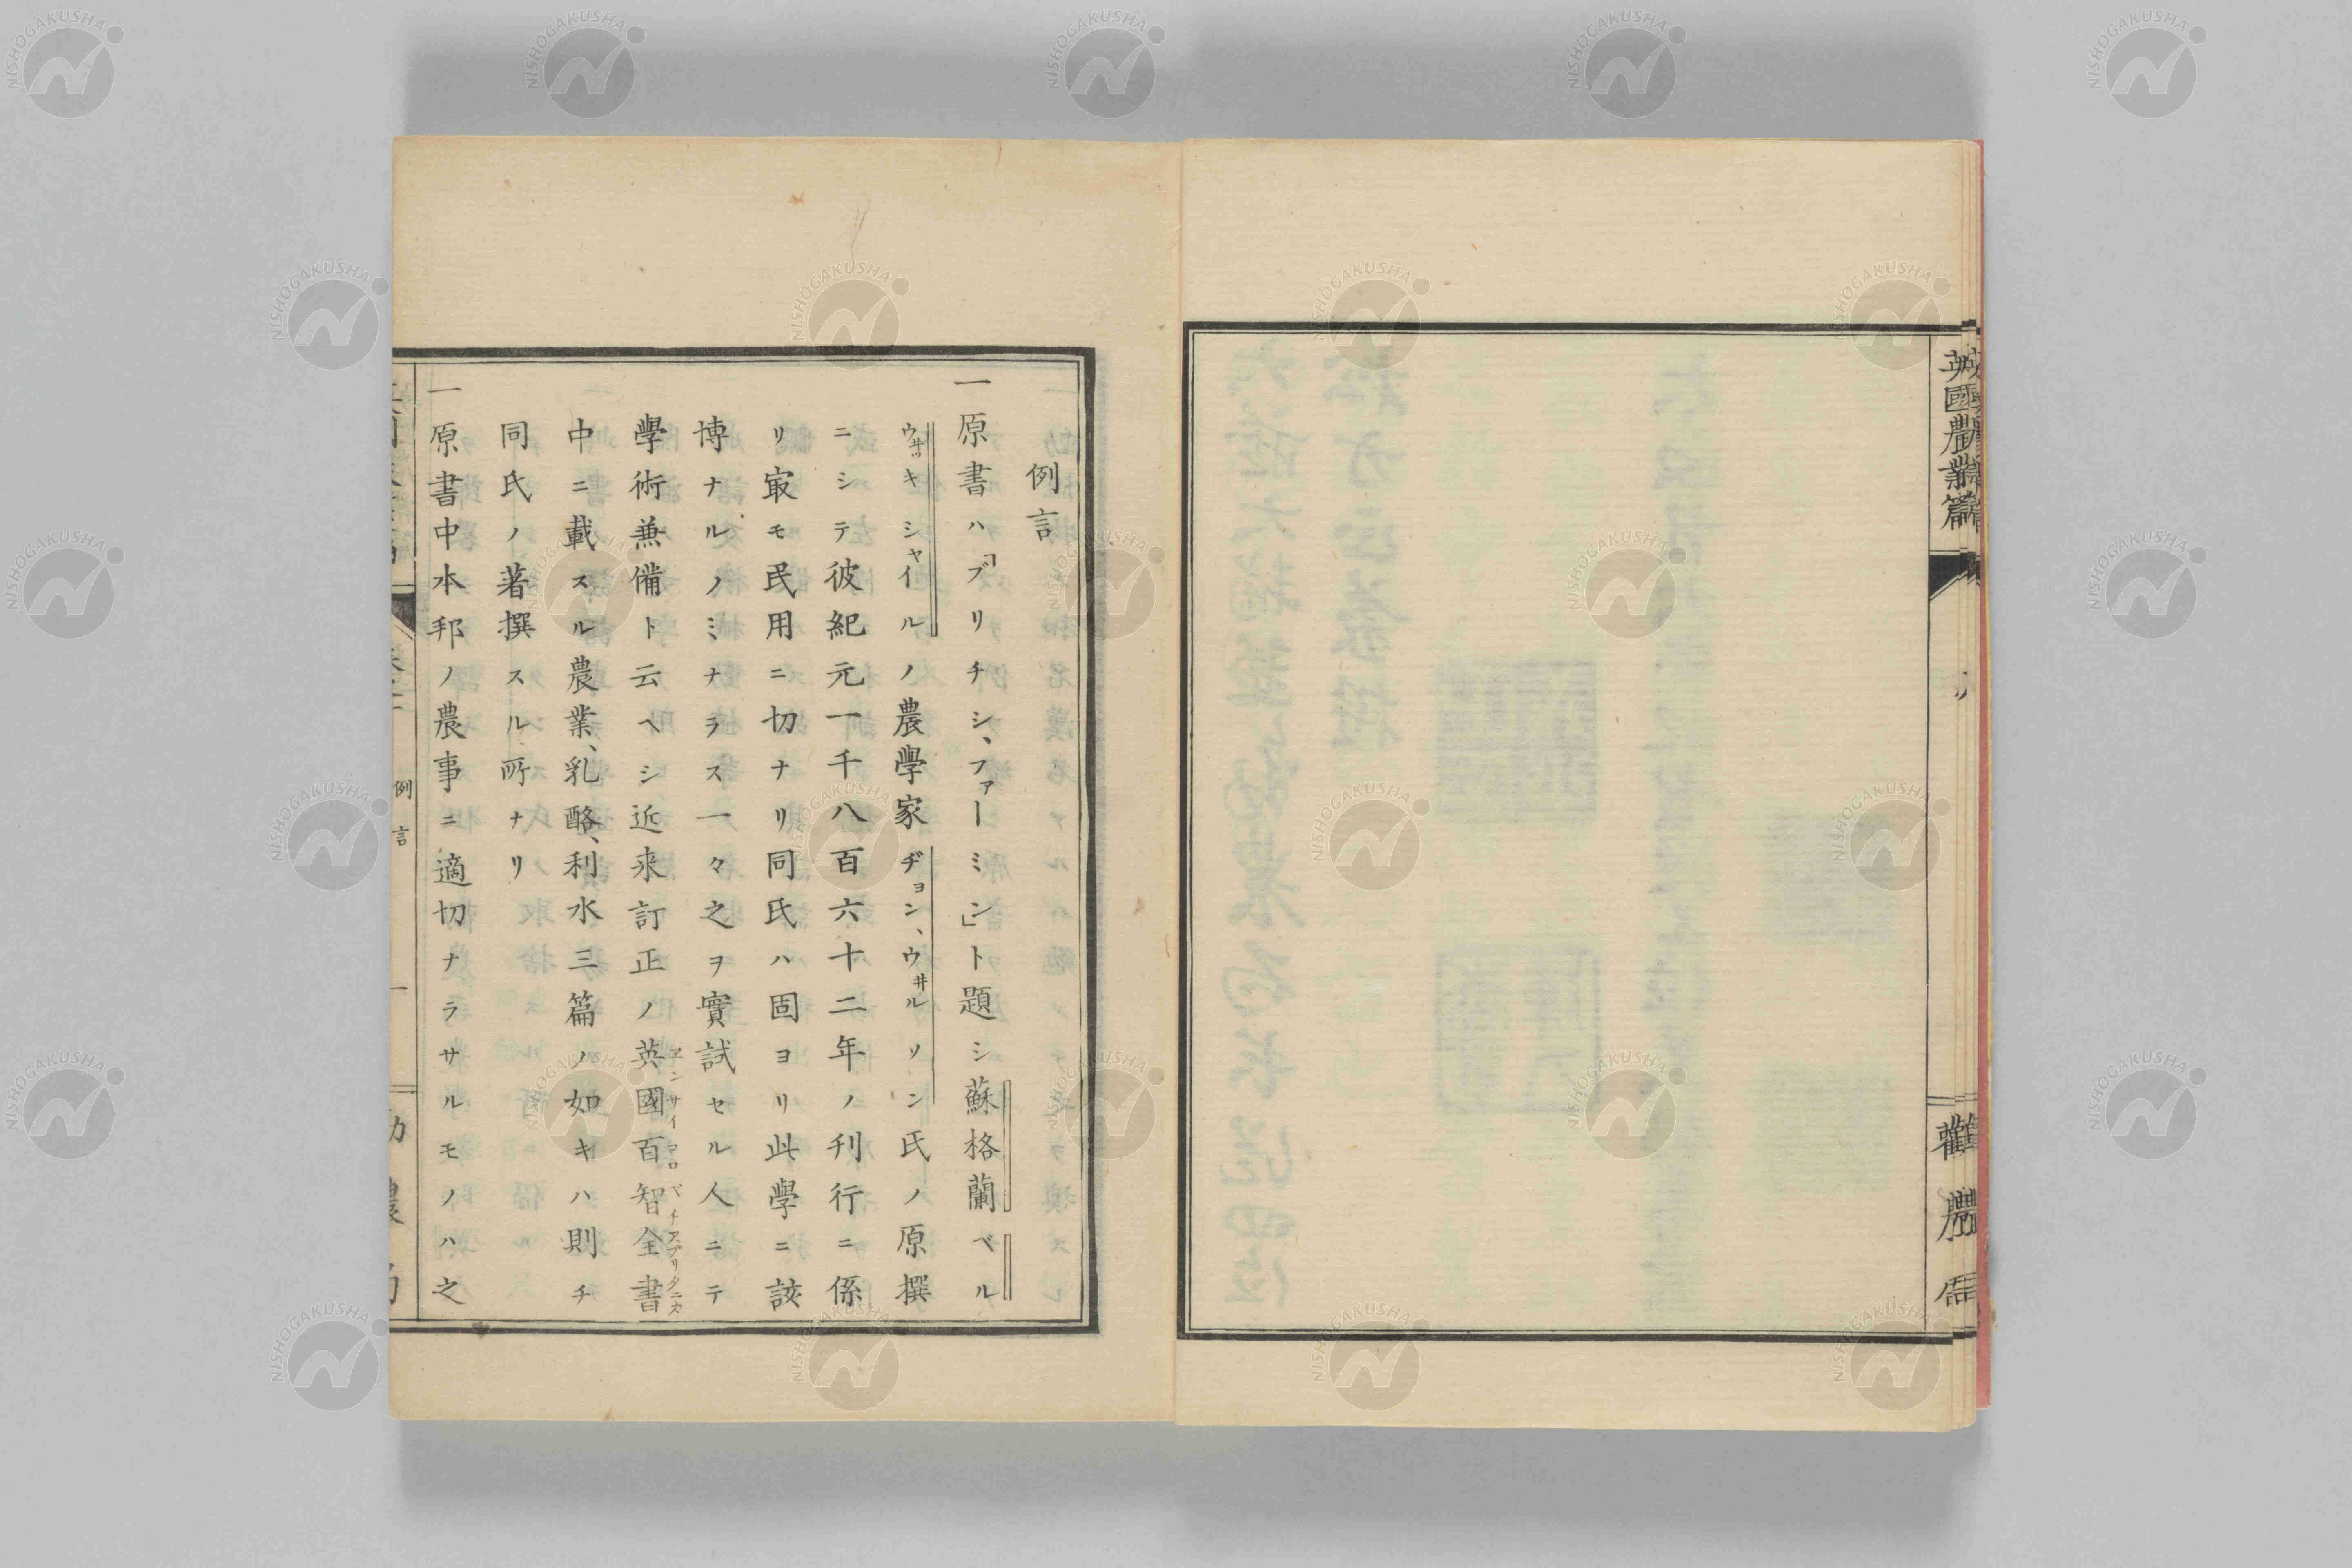 英國農業篇
勸農局
例言
一原書ハ「ブリチシ、ファーミン」ト題シ蘇格蘭ベル
ウ井ッキシャイルノ農學家ヂョン、ウ井ルソン氏ノ原撰
ニシテ彼紀元一千八百六十二年ノ刊行ニ係
リ㝡モ民用ニ切ナリ同氏ハ固ヨリ此學ニ該
博ナルノミナラス一々之ヲ實試セル人ニテ
學術兼備ト云ヘシ近来訂正ノ英國百智全書
中ニ載スル農業、乳酪、利水三篇ノ如キハ則チ
同氏ノ著撰スル所ナリ
一原書中本邦ノ農事ニ適切ナラサルモノハ之
例言
一
NISHOGAKUSHA